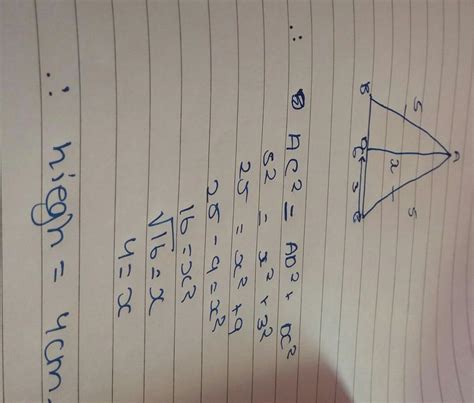 A
5
5
x
B
3
C
∴
AC² = AD² + DC²
5² = x² + 3²
25 = x² + 9
25 - 9 = x²
16 = x²
√16 = x
4 = x
∴ hiegh = 4cm.